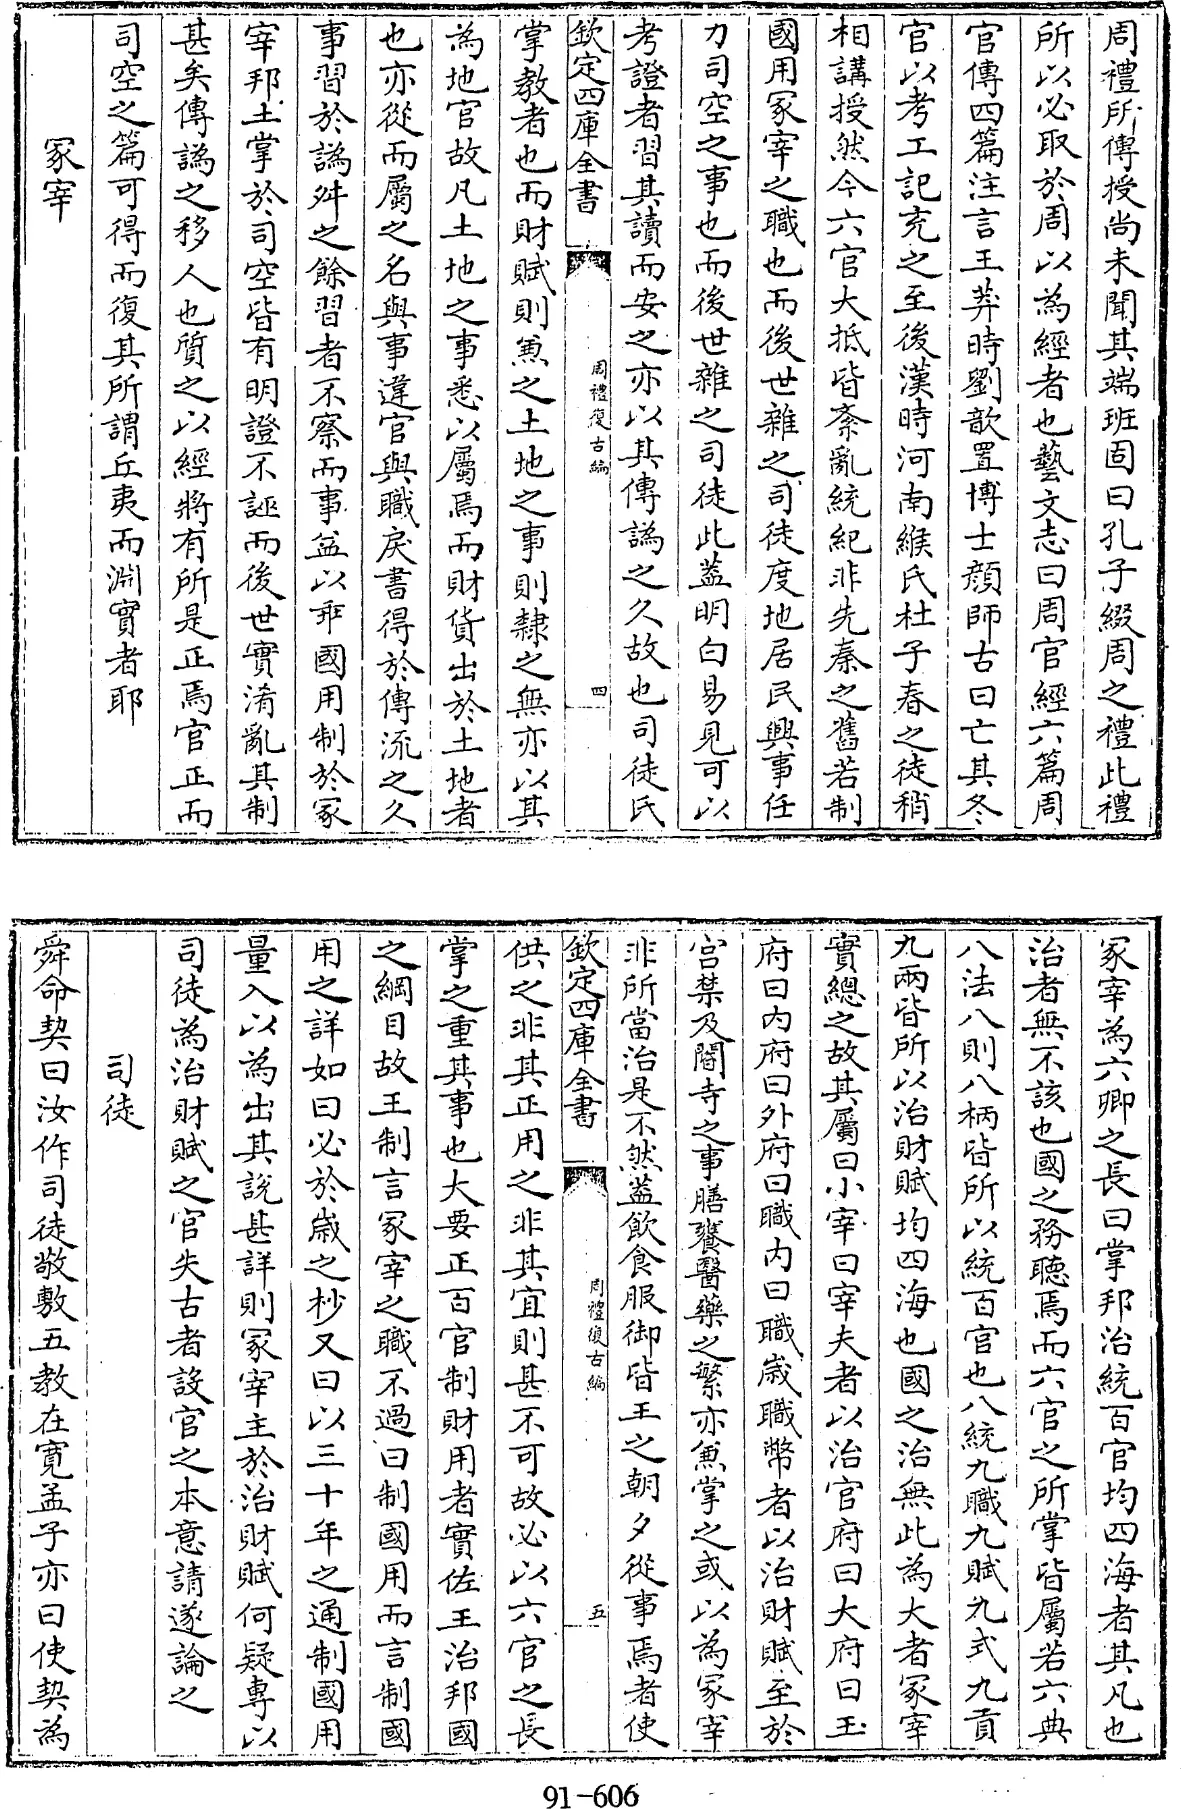 周禮所傳授尚未聞其端班固曰孔子綴周之禮此禮
所以必取於周以為經者也藝文志曰周官經六篇周
官傳四篇注言王莽時劉歆置博士顏師古曰亡其冬
官以考工記充之至後漢時河南緱氏杜子春之徒稍
相講授然今六官大抵皆紊亂統紀非先秦之舊若制
國用冢宰之職也而後世雜之司徒度地居民興事任
力司空之事也而後世雜之司徒此蓋明白易見可以
考證者習其讀而安之亦以其傳譌之久故也司徒氏
欽定四庫全書
周禮復古編
四
掌教者也而財賦則兼之土地之事則隸之無亦以其
為地官故凡土地之事悉以屬焉而財貨出於土地者
也亦從而屬之名與事違官與職戾書得於傳流之久
事習於譌舛之餘習者不察而事益以乖國用制於冢
宰邦土掌於司空皆有明證不誣而後世實淆亂其制
甚矣傳譌之移人也質之以經將有所是正焉官正而
司空之篇可得而復其所謂丘夷而淵實者耶
冢宰
冢宰為六卿之長曰掌邦治統百官均四海者其凡也
治者無不該也國之務聽焉而六官之所掌皆屬若六典
八法八則八柄皆所以統百官也八統九職九賦九式九貢
九兩皆所以治財賦均四海也國之治無此為大者冢宰
實總之故其屬曰小宰曰宰夫者以治官府曰大府曰玉
府曰內府曰外府曰職內曰職歲職幣者以治財賦至於
宮禁及閽寺之事膳饔醫藥之繁亦兼掌之或以為冢宰
非所當治是不然蓋飲食服御皆王之朝夕從事焉者使
欽定四庫全書
周禮復古編
五
供之非其正用之非其宜則甚不可故必以六官之長
掌之重其事也大要正百官制財用者實佐王治邦國
之綱目故王制言冢宰之職不過曰制國用而言制國
用之詳如曰必於歲之杪又曰以三十年之通制國用
量入以為出其說甚詳則冢宰主於治財賦何疑專以
司徒為治財賦之官失古者設官之本意請遂論之
司徒
舜命契曰汝作司徒敬敷五教在寬孟子亦曰使契為
91-606